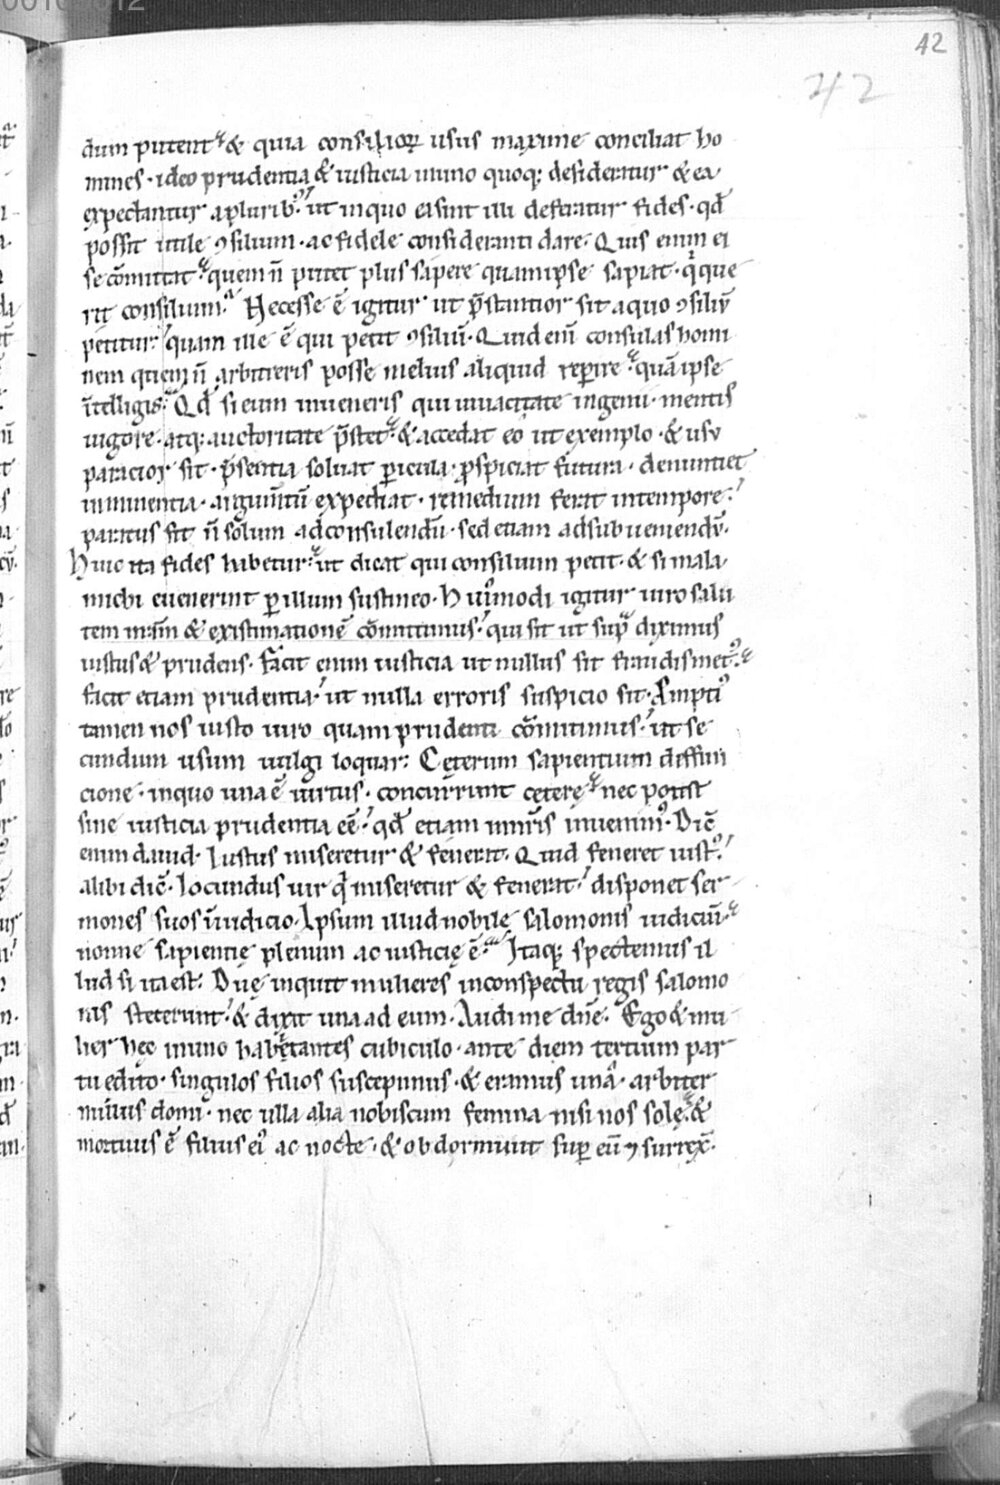 42
42
dum putent· & quia consilioꝝ usus maxime conciliat ho
mines· ideo prudentia & iusticia unino quoq; desideratur & ex
expectantur a plurib;' ut inquo ea sint illi deferatur fides· qđ
possit utile ꝯsilium· ac fidele consideranti dare· Quis enim ei
se cōmittat· quem n̄ putet plus sapere quam ipse sapiat· qͥ que
rit consilium? Necesse ē igitur ut p̄stantior sit a quo ꝯsiliū
petitur· quam ille ē qui petit ꝯsiliū· Quid enī consulas homi
nem quem n̄ arbitreris posse melius aliquid reperire· quā ipse
ītelligis· Qđ si eum inueneris qui uiuacitate ingenii· mentis
uigore· atq; auctoritate p̄stet· & accedat eo ut exemplo· & usu
paracior sit· p̄sentia soluat ꝑicula· ꝓspiciat futura· denuntiet
imminentia· argumtū expediat· remedium ferat in tempore·
paratus sit n̄ solum ad consulendū· sed etiam ad subueniendū·
Huic ita fides habetur· ut dicat qui consilium petit· & si mala
michi euenerint ꝑ illum sustineo· Huiꝰmodi igitur uiro salu
tem nr̄am & existimationē cōmittimus· qui sit ut supᵃ diximus
iustus & prudens· Facit enim iusticia ut nullus sit fraudis metꝰ· &
facit etiam prudentia· ut nulla erroris suspicio sit· Amptiꝰ
tamen nos iusto uiro quam prudenti cōmittimus· ut se
cundum usum uulgi loquar· Cęterum sapientium diffini
cione· inquo una ē uirtus· concurrunt cęterę· nec potest
sine iusticia prudentia eē· qđ etiam in nr̄is inuenimꝰ· Dic̄
enim dauid· Iustus miseretur & fenerat· Quid feneret iustꝰ·
alibi dic̄· Iocundus uir qͥ miseretur & fenerat· disponet ser
mones suos ī iudicio· Ipsum illud nobile salomonis iudiciū·
nonne sapientię plenum ac iusticię ē· Itaq; spectemus il
lud si ita est· Duę inquit mulieres in conspectu regis salomo
nis steterunt· & dixit una ad eum· Audi me dn̄e· Ego & mu
lier hec in uno habitantes cubiculo· ante diem tertium par
tu edito· singulos filios suscepimus· & eramus una· arbiter
nullus domū· nec ulla alia nobiscum femina nisi nos solę· &
mortuus ē filius eiꝰ ac nocte· & obdormiuit suꝑ eū ⁊ surrex̄·